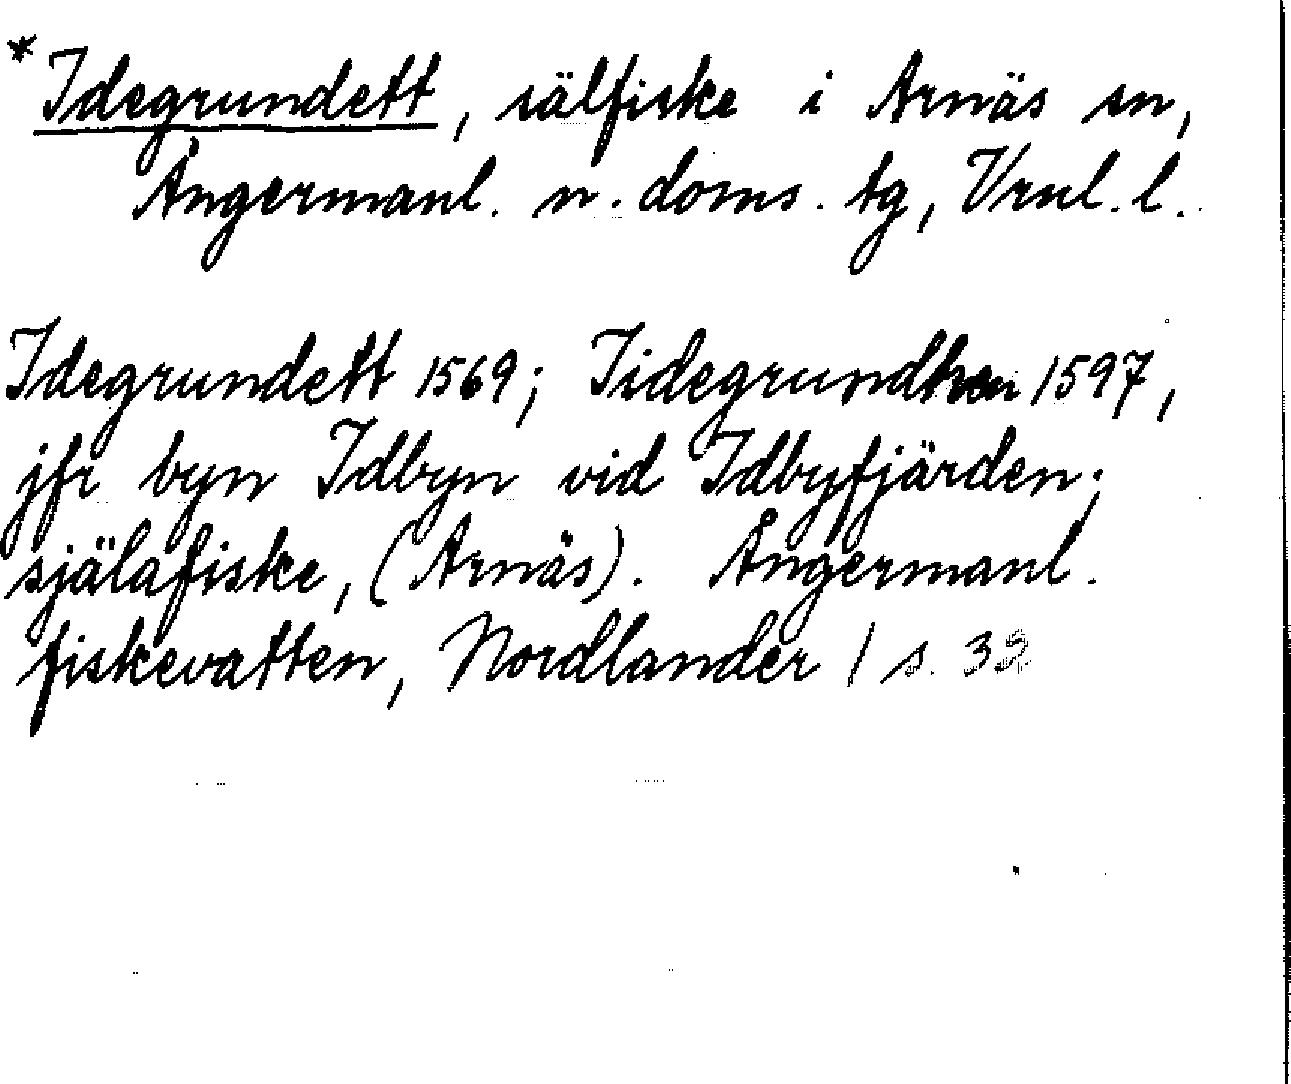 * Idegrundett, sälfiske i Arnäs sn,
Ångermanl. n. doms. tg, Vrnl. l.
Idegrundett 1569; Iidegrundhen 1597,
jfr byn Idbyn vid Idbyfjärden;
själafiske, (Arnäs). Ångermanl.
fiskevatten, Nordlander / s. 39